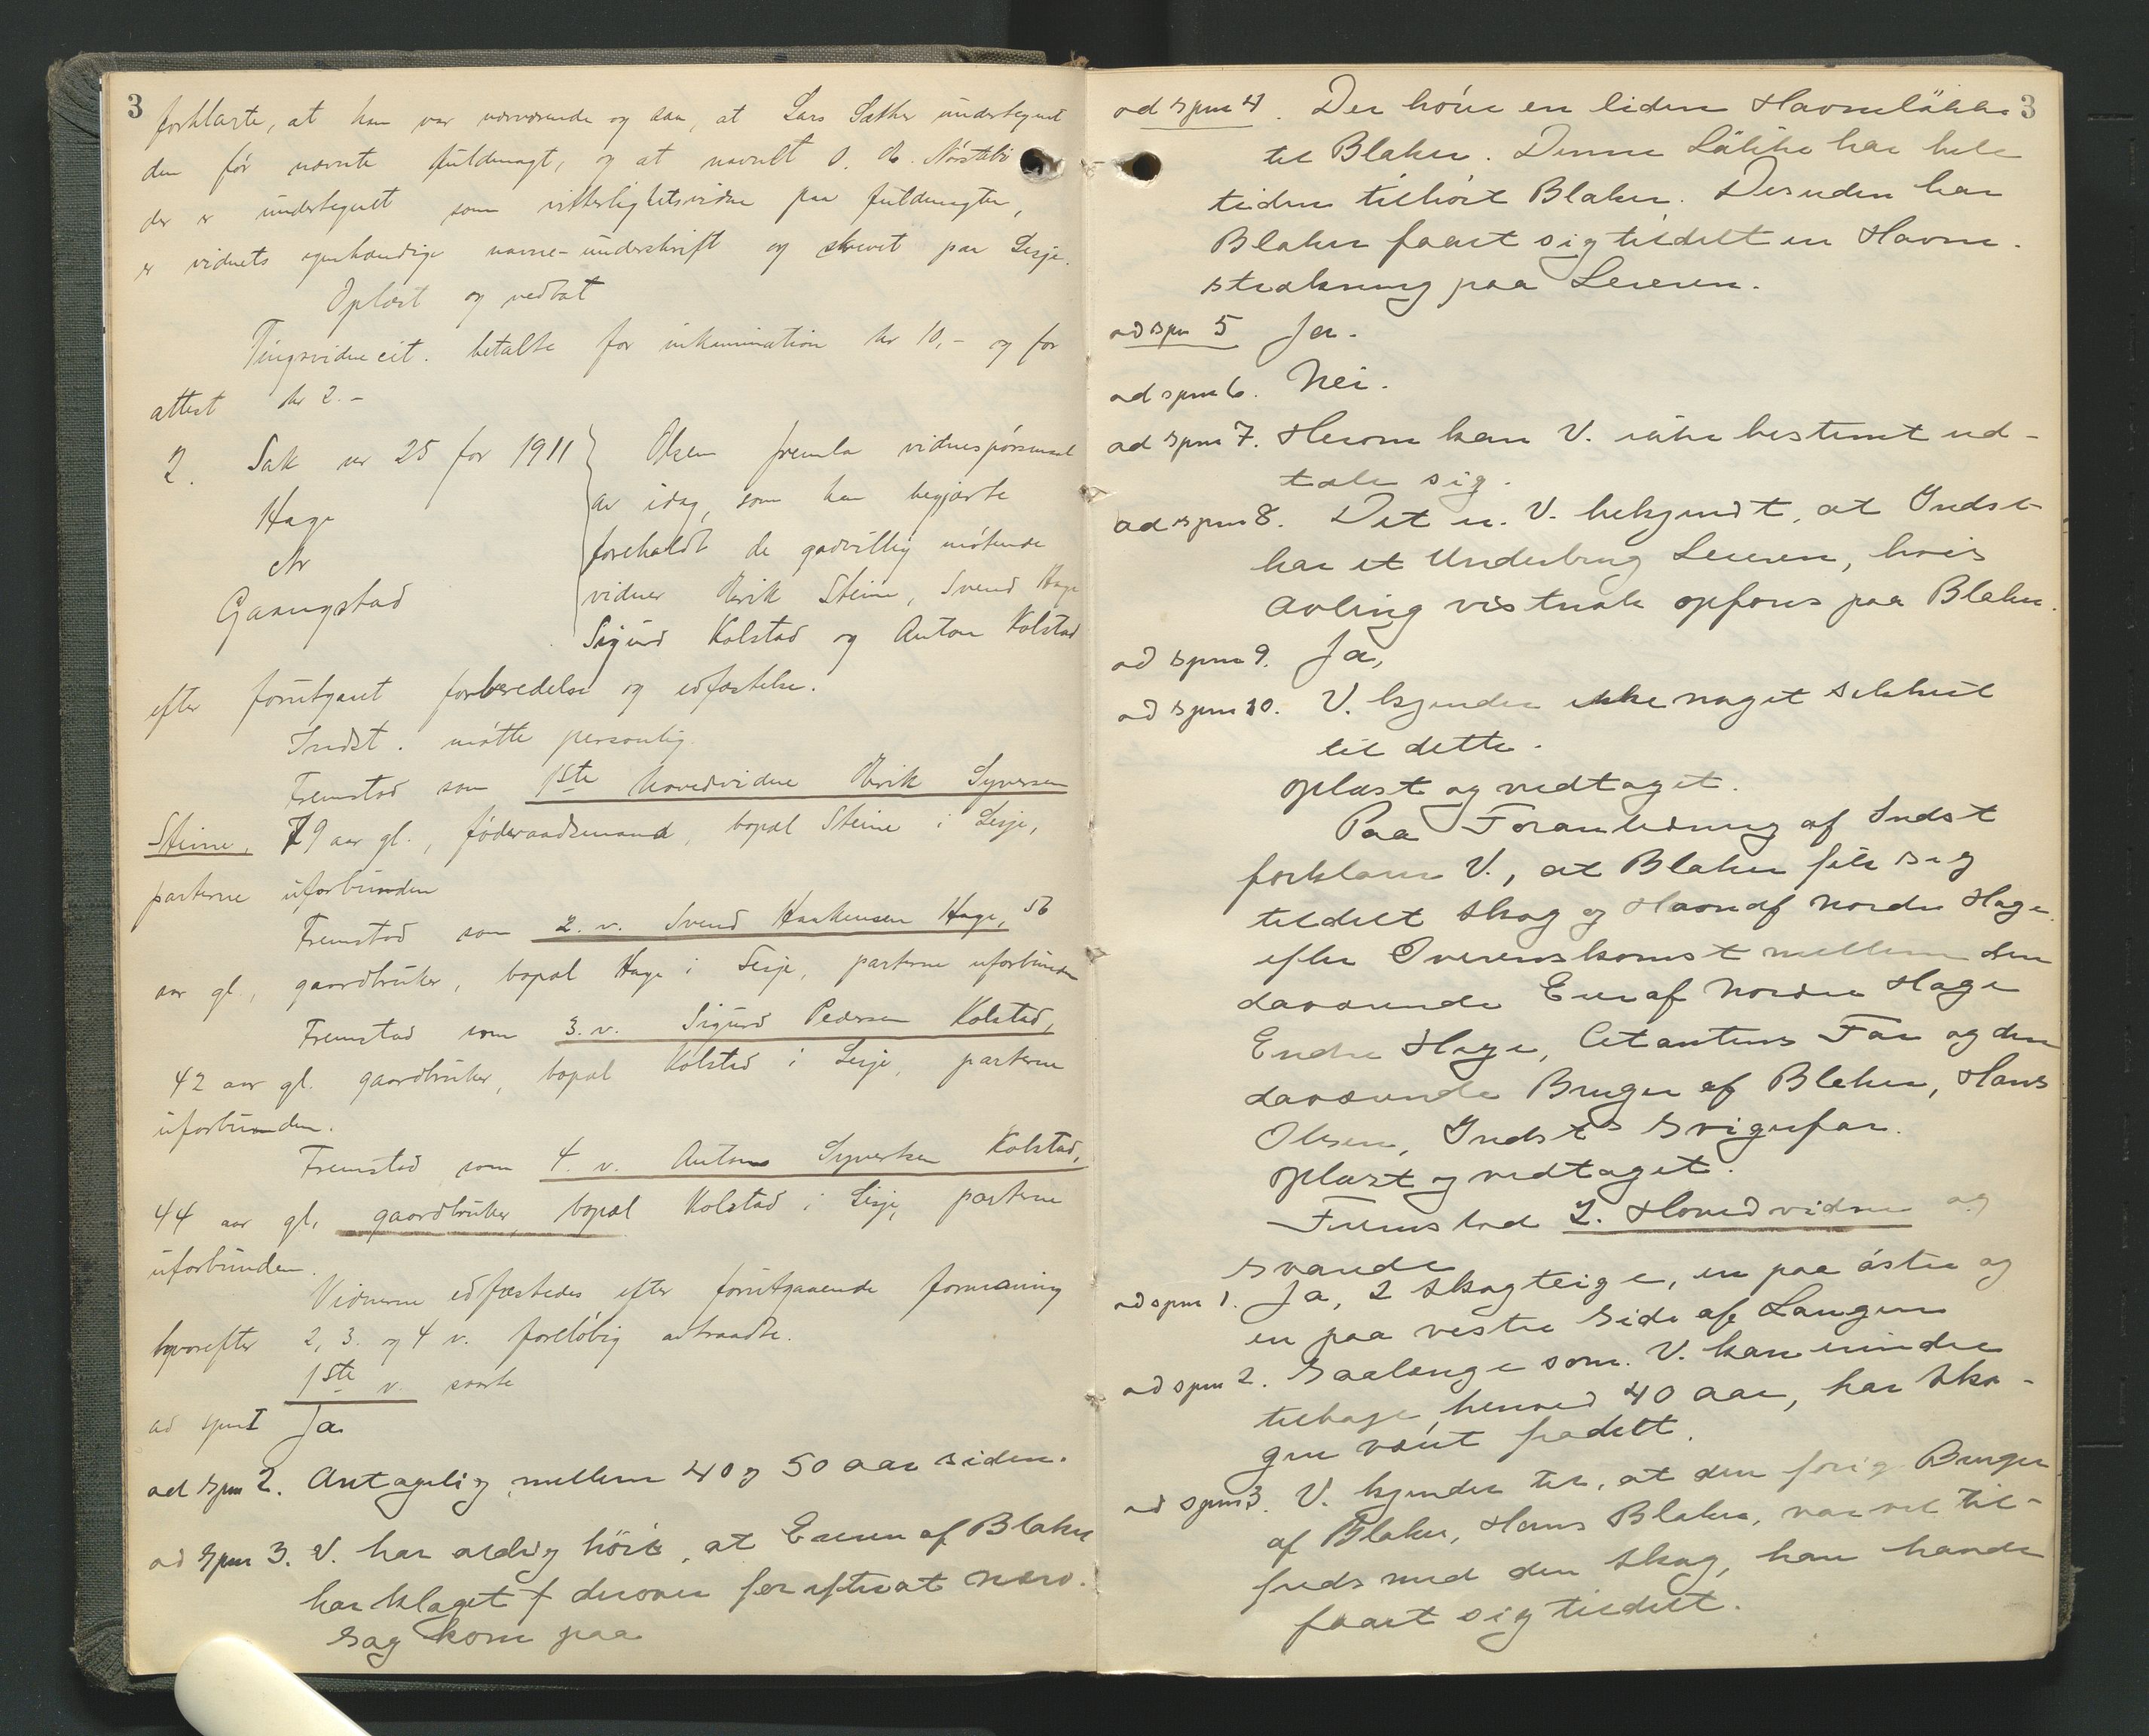 3
forklarte, at han var nærværende og saa, at Lars Sæther undertegnet
den før nævnte fuldmagt, og at navnet O. K. Nørstebø
der er undertegnet som vitterlighetsvidne paa fuldmagten,
er vidnets egenhændige navne-underskrift og skrevet paa Lesje.
Oplæst og vedtat
Tingsvidnecit. betalte for inkamination kr 10,- og for
attest kr 2.-
2. Sak nr 25 for 1911
Hage
Gaangstad
Olsen fremla vidnespørsmaal
av idag, som han begjærte
foreholdt de godvillig møtende
vidner Erik Steine, Svend Hage
Sigurd Kolstad og Anton Kolstad
efter forutgaaet forberedelse og edfæstelse.
Indst. møtte personlig.
Fremstod som 1ste hovedvidne Erik Syversen
Steine, 79 aar gl., føderaadsmand, bopæl Steine i Lesje,
parterne uforbunden
Fremstod som 2. v. Svend Haakensen Hage, 56
aar gl., gaardbruker, bopæl Hage i Lesje, parterne uforbunden
Fremstod som 3. v. Sigurd Pedersen Kolstad,
42 aar gl. gaardbruker, bopæl Kolstad i Lesje, parterne
uforbunden.
Fremstod som 4. v. Anton Syversen Kolstad,
44 aar gl. gaardbruker, bopæl Kolstad i Lesje, parterne
uforbunden.
Vidnerne edfæstedes efter forutgaaende formaning
hvorefter 2, 3. og 4 v. foreløbig attraadte.
1ste v. svarte
ad spm I Ja
ad spm 2. Antagelig mellem 40 og 50 aar siden.
ad Spm 3. V. har aldrig hört, at Eieren af Blaker
har klaget derover før efterat nærv.
Sag kom paa
3
ad spm 4. Der hörer en liden Havneläkke
til Blaker. Denne Läkke har hele
tiden tilhört Blaker. Desuden har
Blaker faaet sig tildelt en Havne-
strækning paa Leieren.
ad spm 5 Ja.
ad spm 6. Nei.
ad spm 7. Herom kan V. ikke bestemt ud-
tale sig.
ad spm 8. Det er V. bekjendt, at Indst
har et Underbrug Leieren, hvis
Avling vistnok opföres paa Blaker.
ad spm 9. Ja,
ad spm 10. V. kjender ikke noget sikkert
til dette.
Oplæst og vedtaget.
Paa Foranledning af Indst
forklarer V., at Blaker fik sig
tildelt Skog og Havn af Nordre Hage
efter Overenskomst mellem den
daværende Eier af Nordre Hage
Endre Hage, Citantens Far og den
daværende Bruger af Blaker, Hans
Olsen, Indsts Svigerfar.
Oplæst og vedtaget.
Fremstod 2. Hovedvidne og
svarede
ad spm 1. Ja, 2 Skogteige, en paa östre og
en paa vestre Side af Laugen
ad spm 2. Saalenge som V. kan mindes
tilbage, henved 40 aar, har Sko-
gen været fradelt.
ad spm 3. V. kjender til, at den forige Bruger
af Blaker, Hans Blaker, var vel til-
freds med den Skog, han havde
faaet sig tildelt.